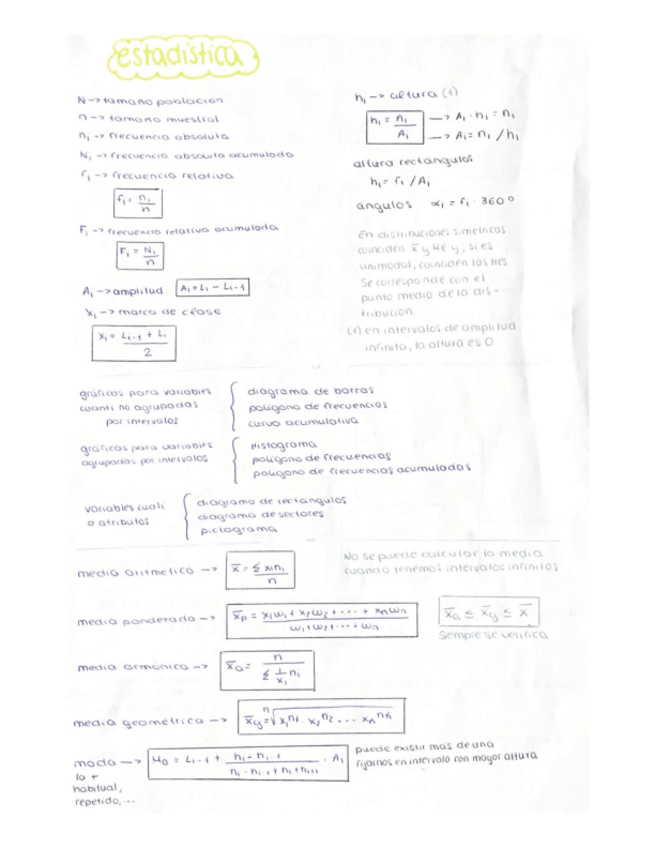 estadística
N → tamaño población
n → tamaño muestral
nᵢ → frecuencia absoluta
Nᵢ → frecuencia absoluta acumulada
fᵢ → frecuencia relativa
fᵢ = nᵢ / n
Fᵢ → frecuencia relativa acumulada
Fᵢ = Nᵢ / n
Aᵢ → amplitud Aᵢ = Lᵢ - Lᵢ-₁
xᵢ → marca de clase
xᵢ = Lᵢ-₁ + Lᵢ / 2
hᵢ → altura (1)
hᵢ = nᵢ / Aᵢ → Aᵢ · hᵢ = nᵢ
→ Aᵢ = nᵢ / hᵢ
altura rectángulos
hᵢ = fᵢ / Aᵢ
ángulos αᵢ = fᵢ · 360º
En distribuciones simétricas
coinciden x̄ y Me y, si es
unimodal, coinciden las tres
Se corresponde con el
punto medio de la dis-
tribución.
(1) en intervalos de amplitud
infinito, la altura es 0
gráficos para variables
cuanti no agrupadas
por intervalos
diagrama de barras
polígono de frecuencias
curva acumulativa
gráficos para variables
agrupadas por intervalos
Histograma
polígono de frecuencias
polígono de frecuencias acumuladas
variables cuali
o atributos
diagrama de rectángulos
diagrama de sectores
pictograma
media aritmética → x̄ = Σ xᵢnᵢ / n
No se puede calcular la media
cuando tenemos intervalos infinitos
media ponderada → x̄p = x₁ω₁ + x₂ω₂ + ··· + xnωn / ω₁ + ω₂ + ··· + ωn
x̄a ≤ x̄g ≤ x̄
Siempre se verifica
media armónica → x̄a = n / Σ 1/xᵢ nᵢ
media geométrica → x̄g = ⁿ√ x₁ⁿ¹ · x₂ⁿ² ··· xnⁿⁿ
moda → Mo = Lᵢ-₁ + hᵢ - hᵢ-₁ / hᵢ - hᵢ-₁ + hᵢ + hᵢ+₁ · Aᵢ
la +
habitual,
repetida,...
puede existir más de una
fijarnos en intervalo con mayor altura